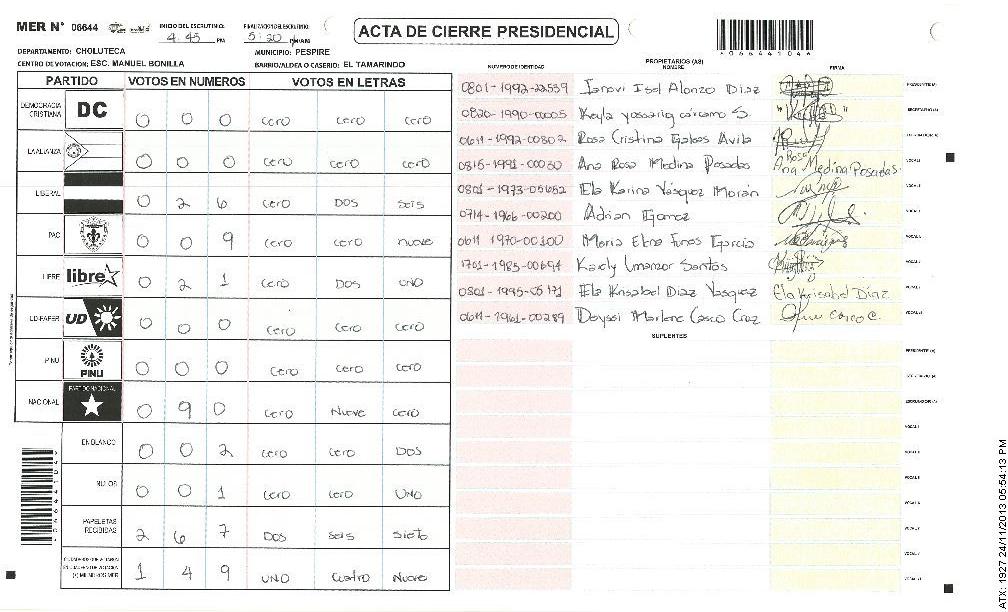 MER N° 06644 INICIO DEL ESCRUTINIO: 4:45 PM FINALIZACION DEL ESCRUTINIO: 5:20 PM/AM
ACTA DE CIERRE PRESIDENCIAL
DEPARTAMENTO: CHOLUTECA MUNICIPIO: PESPIRE
CENTRO DE VOTACION: ESC. MANUEL BONILLA BARRIO/ALDEA O CASERIO: EL TAMARINDO
PARTIDO VOTOS EN NUMEROS VOTOS EN LETRAS
DEMOCRACIA CRISTIANA DC 0 0 0 cero cero cero
LA ALIANZA 0 0 0 cero cero cero
LIBERAL 0 2 6 cero DOS seis
PAC 0 0 9 cero cero nueve
LIBRE libre 0 2 1 cero DOS UNO
UD-FAPER UD 0 0 0 cero cero cero
PINU PINU 0 0 0 cero cero cero
NACIONAL PARTIDO NACIONAL 0 9 0 cero Nueve cero
EN BLANCO 0 0 2 cero cero DOS
NULOS 0 0 1 cero cero UNO
PAPELETAS RECIBIDAS 2 6 7 DOS seis siete
1 4 9 UNO cuatro Nueve
NUMERO DE IDENTIDAD PROPIETARIOS (AS) NOMBRE FIRMA
0801-1992-22539 Isaol Alonzo Diaz PRESIDENTE (A)
0820-1990-00005 Keyla cárcamo S. SECRETARIO (A)
0611-1992-00802 Rosa Cristina Avila ESCRUTADOR (A)
0815-1991-00030 Ana Rosa Medina Posadas Ana Rosa Medina Posadas. VOCAL I
0801-1973-05652 Ela Karina Vásquez Morán
0714-1966-00200 Adrian Gomez
0611 1970-00300 Maria Elena Funes Garcia
1701-1985-00694 Karely Umanzor Santos
0801-1995-05171 Ela Krisabel Diaz Vasquez Ela Krisabel Diaz
0611-1961-00289 Deyssi Marlene Casco Cruz Casco C.
SUPLENTES
PRESIDENTE (A)
SECRETARIO (A)
ESCRUTADOR (A)
ATX: 1927 24/11/2013 05:54:13 PM